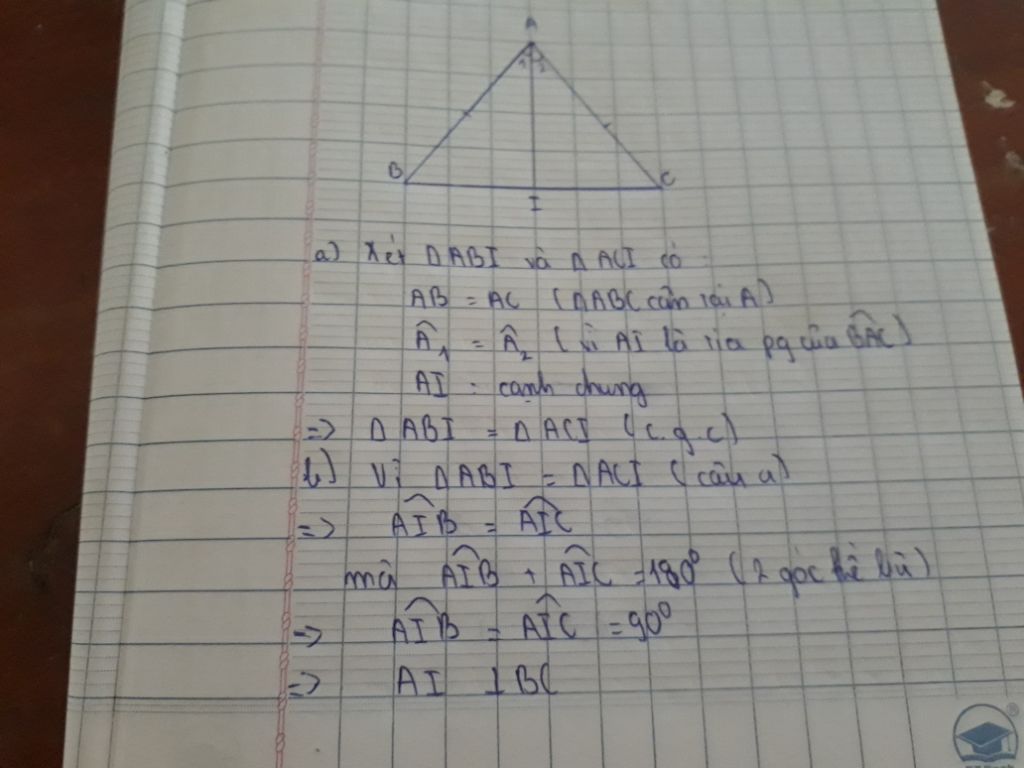 A
1 2
B
C
I
a) Xét ΔABI và ΔACI có
AB = AC (ΔABC cân tại A)
Â₁ = Â₂ (vì AI là tia pg của B̂AC)
AI : cạnh chung
=> ΔABI = ΔACI (c.g.c)
b) Vì ΔABI = ΔACI (câu a)
=> AÎB = AÎC
mà AÎB + AÎC = 180⁰ (2 góc kề bù)
=> AÎB = AÎC = 90⁰
=> AI ⊥ BC